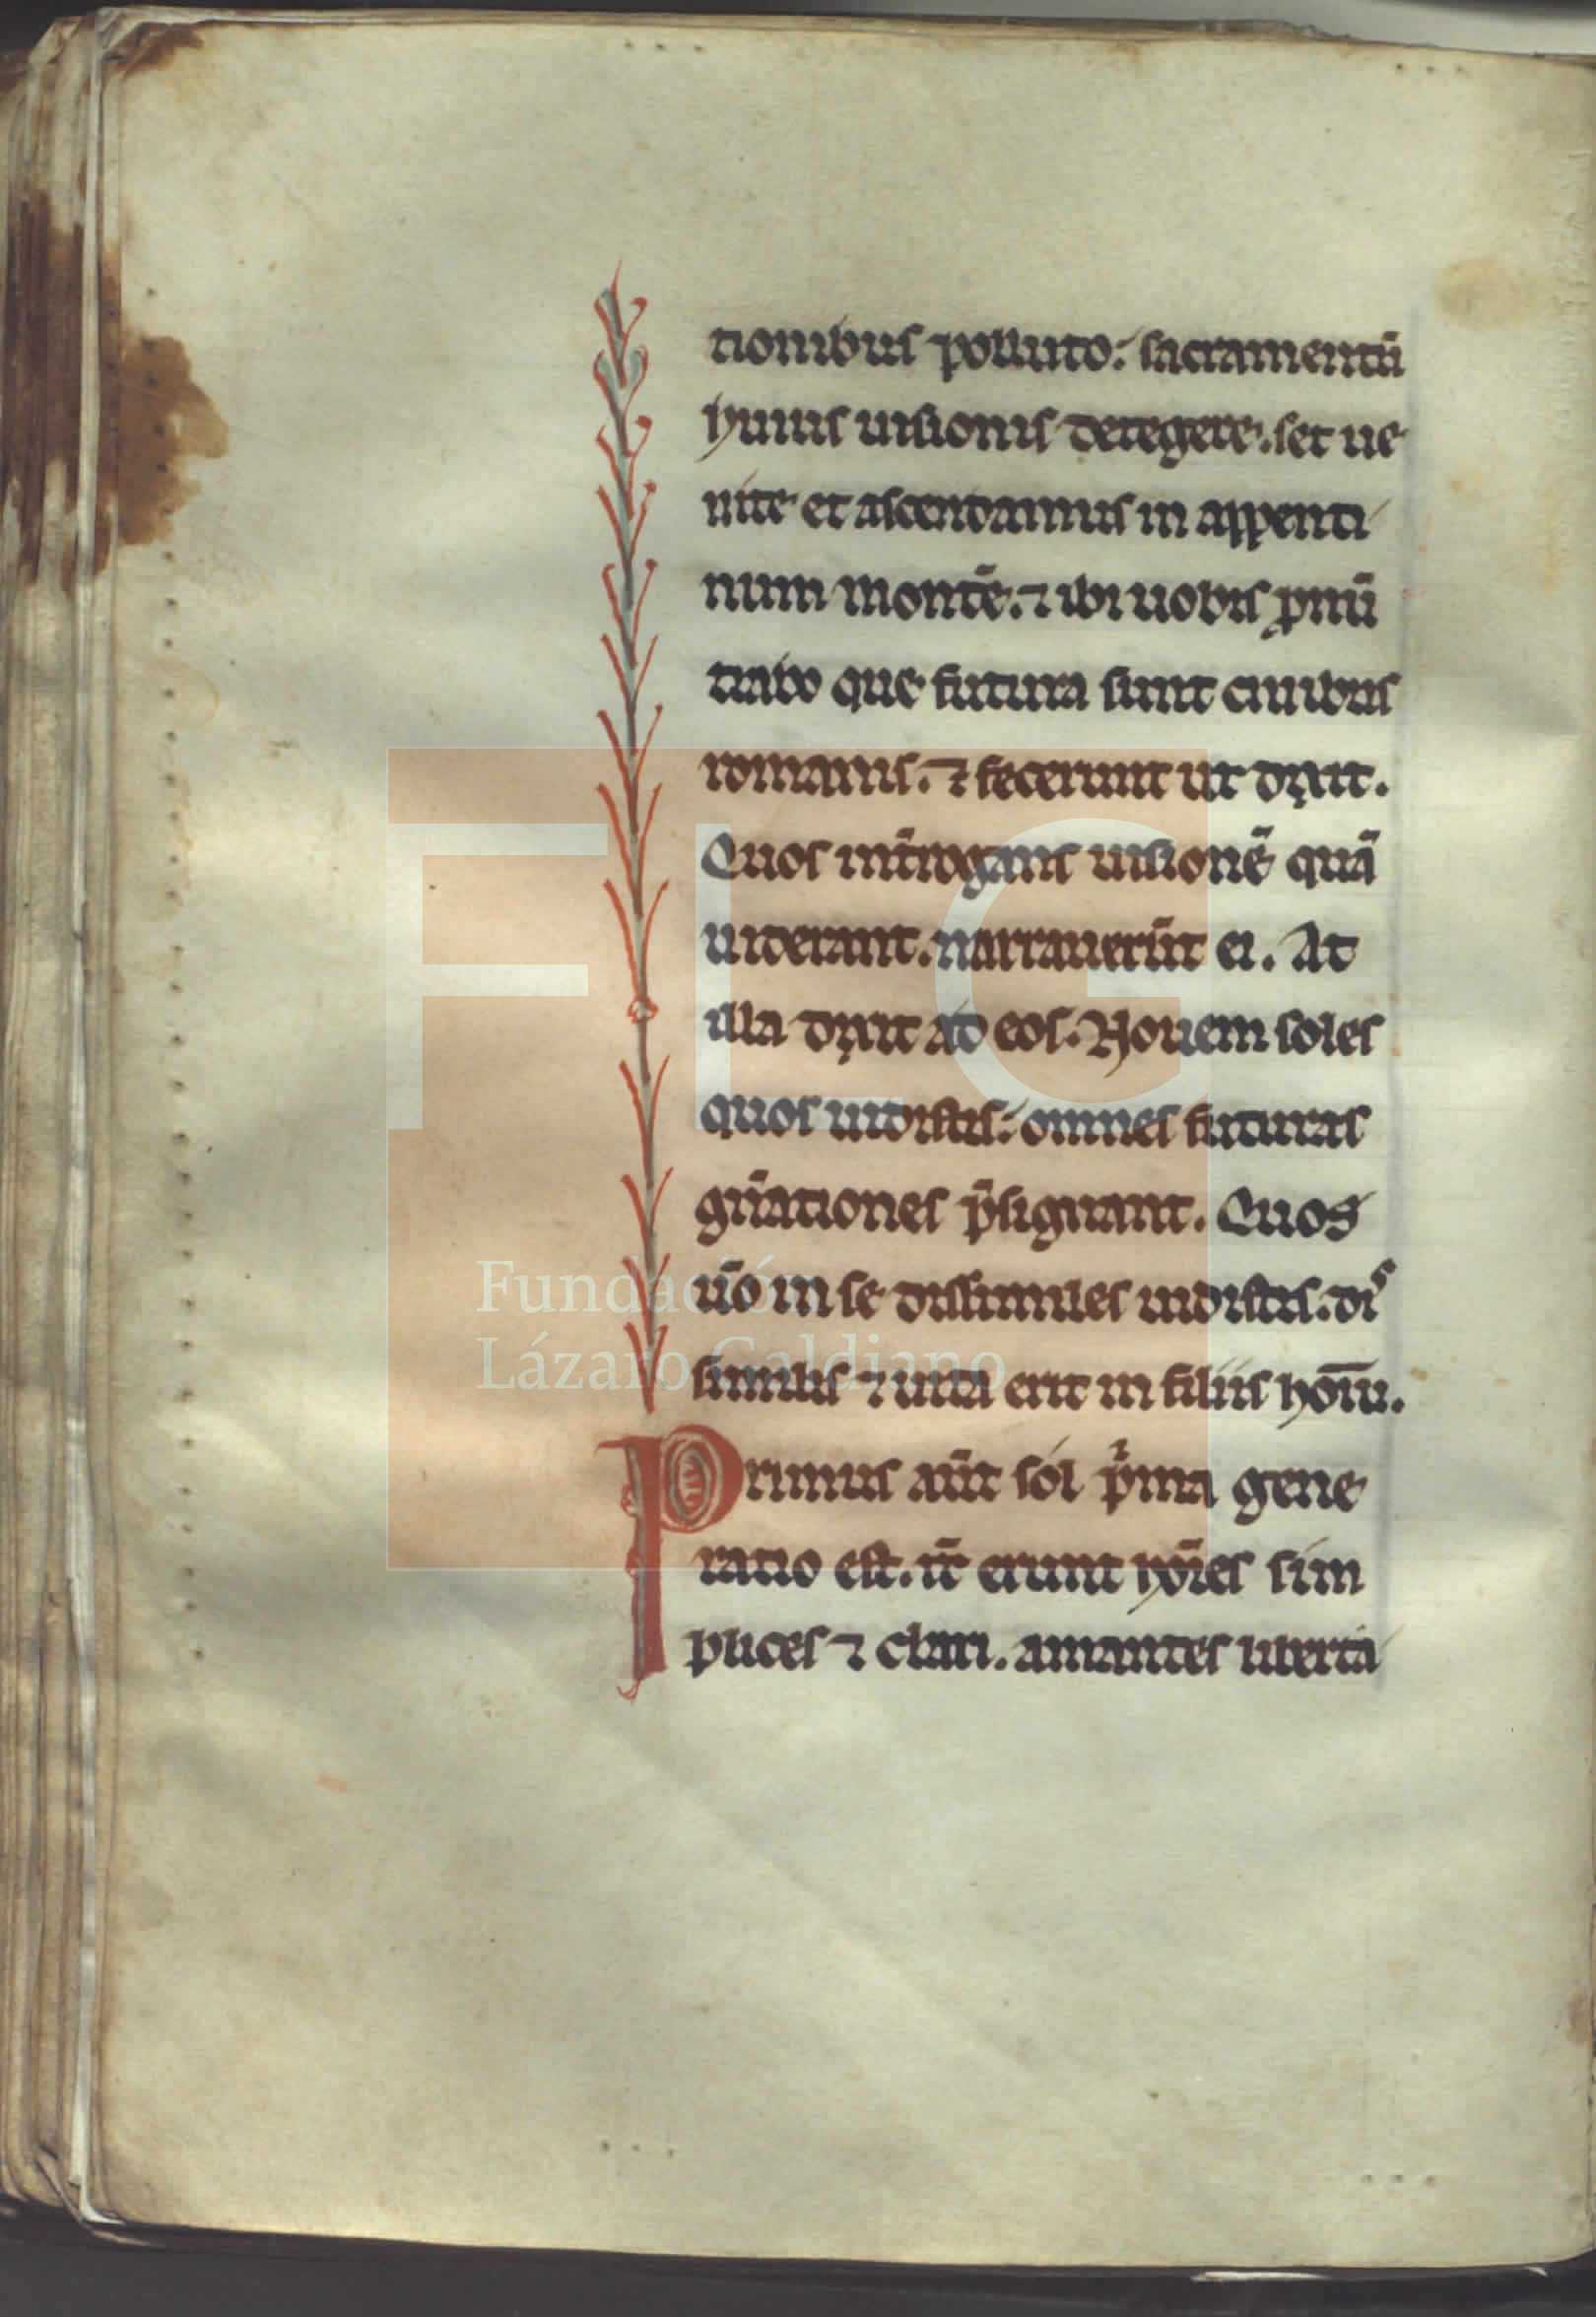 tionibus polluto. sacramentū
huius uisionis detegere. set ue
nite et ascendamus in appenti
num montē. ⁊ ibi uobis ꝓnū
tiabo que futura sunt ciuibus
romanis. ⁊ fecerunt ut dixit.
Quos int̄rogans uisionē quā
uiderant. narrauerūt ei. At
illa dixit ad eos. Nouem soles
quos uidistis. omnes futuras
gn̄ationes p̄signant. Quos
ūo in se dissimiles uidistis. di
similis ⁊ uita erit in filiis hoīu.
Primus aūt sol pⁱma gene
ratio est. īt erunt hoīes sim
plices ⁊ clari. amantes liberta
FLG
Fundación
Lázaro Galdiano